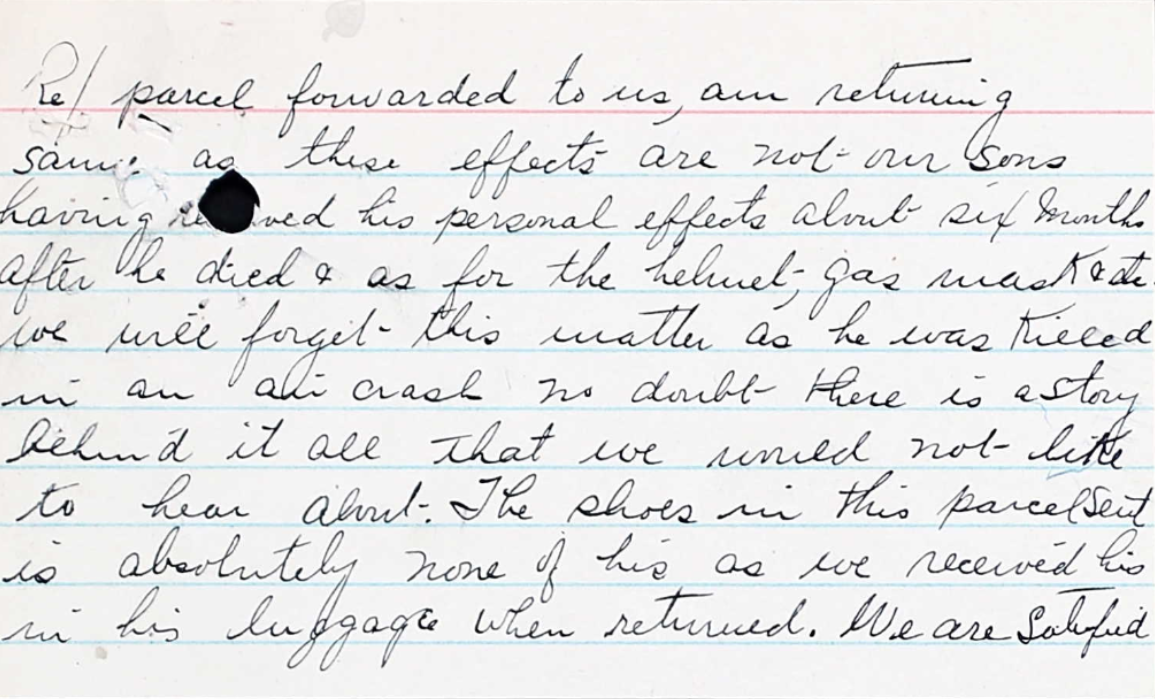 Re/ parcel forwarded to us, am returning
same as these effects are not our sons
having his personal effects about six months
after he died & as for the helmet, gas mask & etc.
we will forget this matter as he was killed
in an air crash no doubt there is a story
behind it all that we would not like
to hear about. The shoes in this parcel sent
is absolutely none of his as we received his
in his luggage when returned. We are satisfied